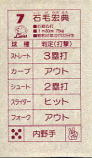 7 石毛宏典
球種 判定(打撃)
ストレート 3塁打
カーブ アウト
シュート 2塁打
スライダー ヒット
フォーク アウト
内野手